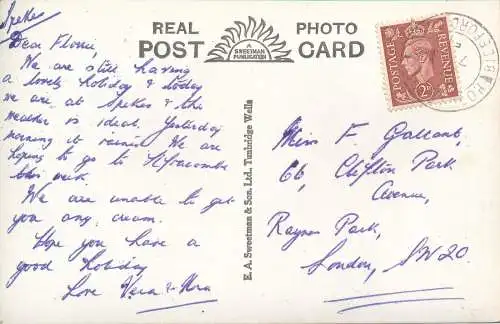 Speke
REAL PHOTO
POST CARD
A SWEETMAN PUBLICATION
POSTAGE REVENUE
2D
Dear Florrie
We are still having
a lovely holiday & today
we are at Spekes & the
weather is ideal. Yesterday
morning it rained We are
hoping to go to Ilfracombe
this week.
We are unable to get
you any cream.
Hope you have a
good holiday
Love Vera &
E. A. Sweetman & Son. Ltd., Tunbridge Wells
Miss F. Gallant,
66, Clifton Park
Avenue,
Raynes Park,
London, SW20.